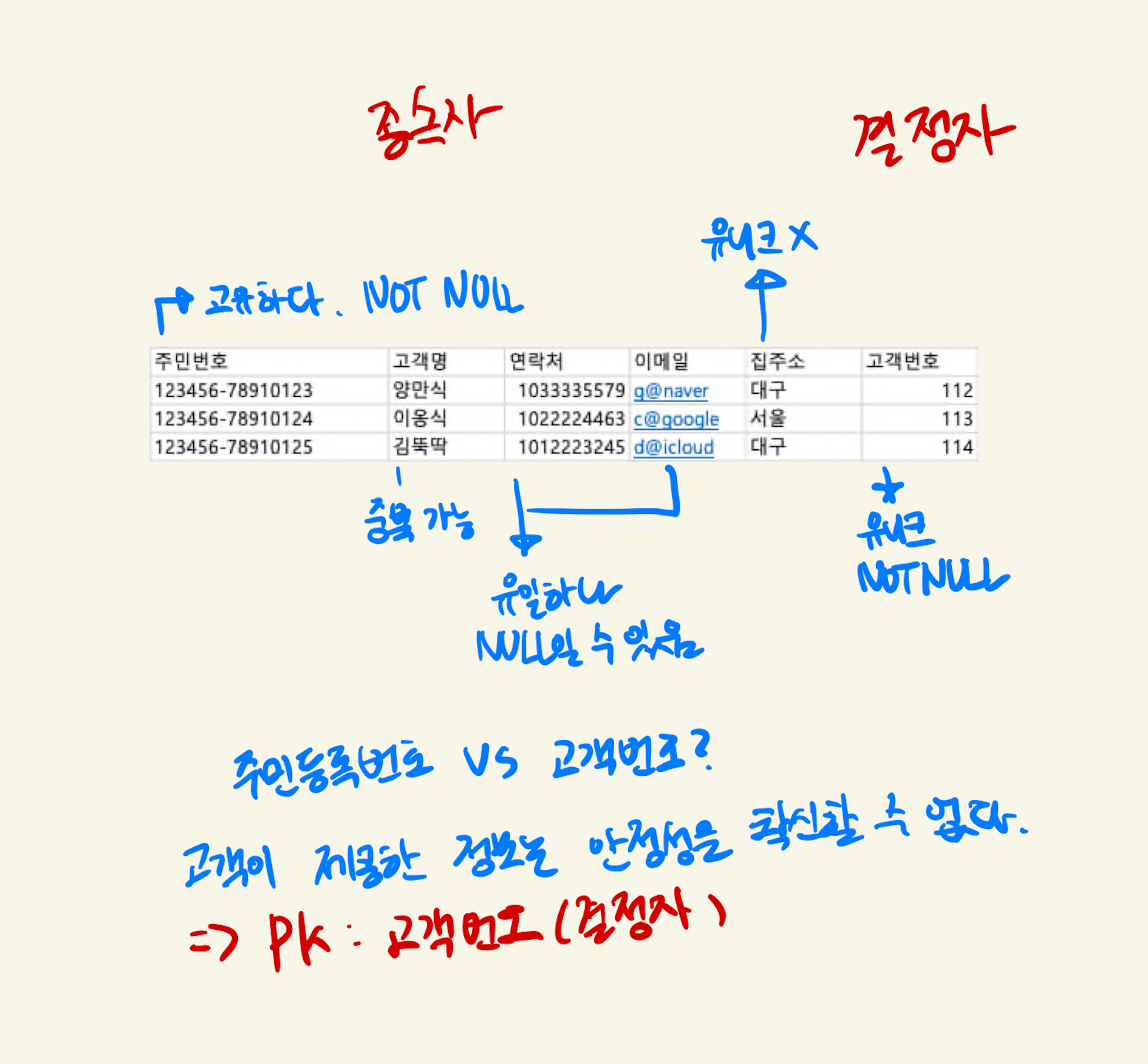 종속자 결정자
유니크 X
고유하다. NOT NULL
주민번호 고객명 연락처 이메일 집주소 고객번호
123456-78910123 양만식 1033335579 g@naver 대구 112
123456-78910124 이옹식 1022224463 c@google 서울 113
123456-78910125 김뚝딱 1012223245 d@icloud 대구 114
중복 가능
유니크
NOT NULL
유일하나
NULL일 수 있음
주민등록번호 VS 고객번호?
고객이 제공한 정보는 안정성을 확신할 수 없다.
=> PK : 고객번호 (결정자)